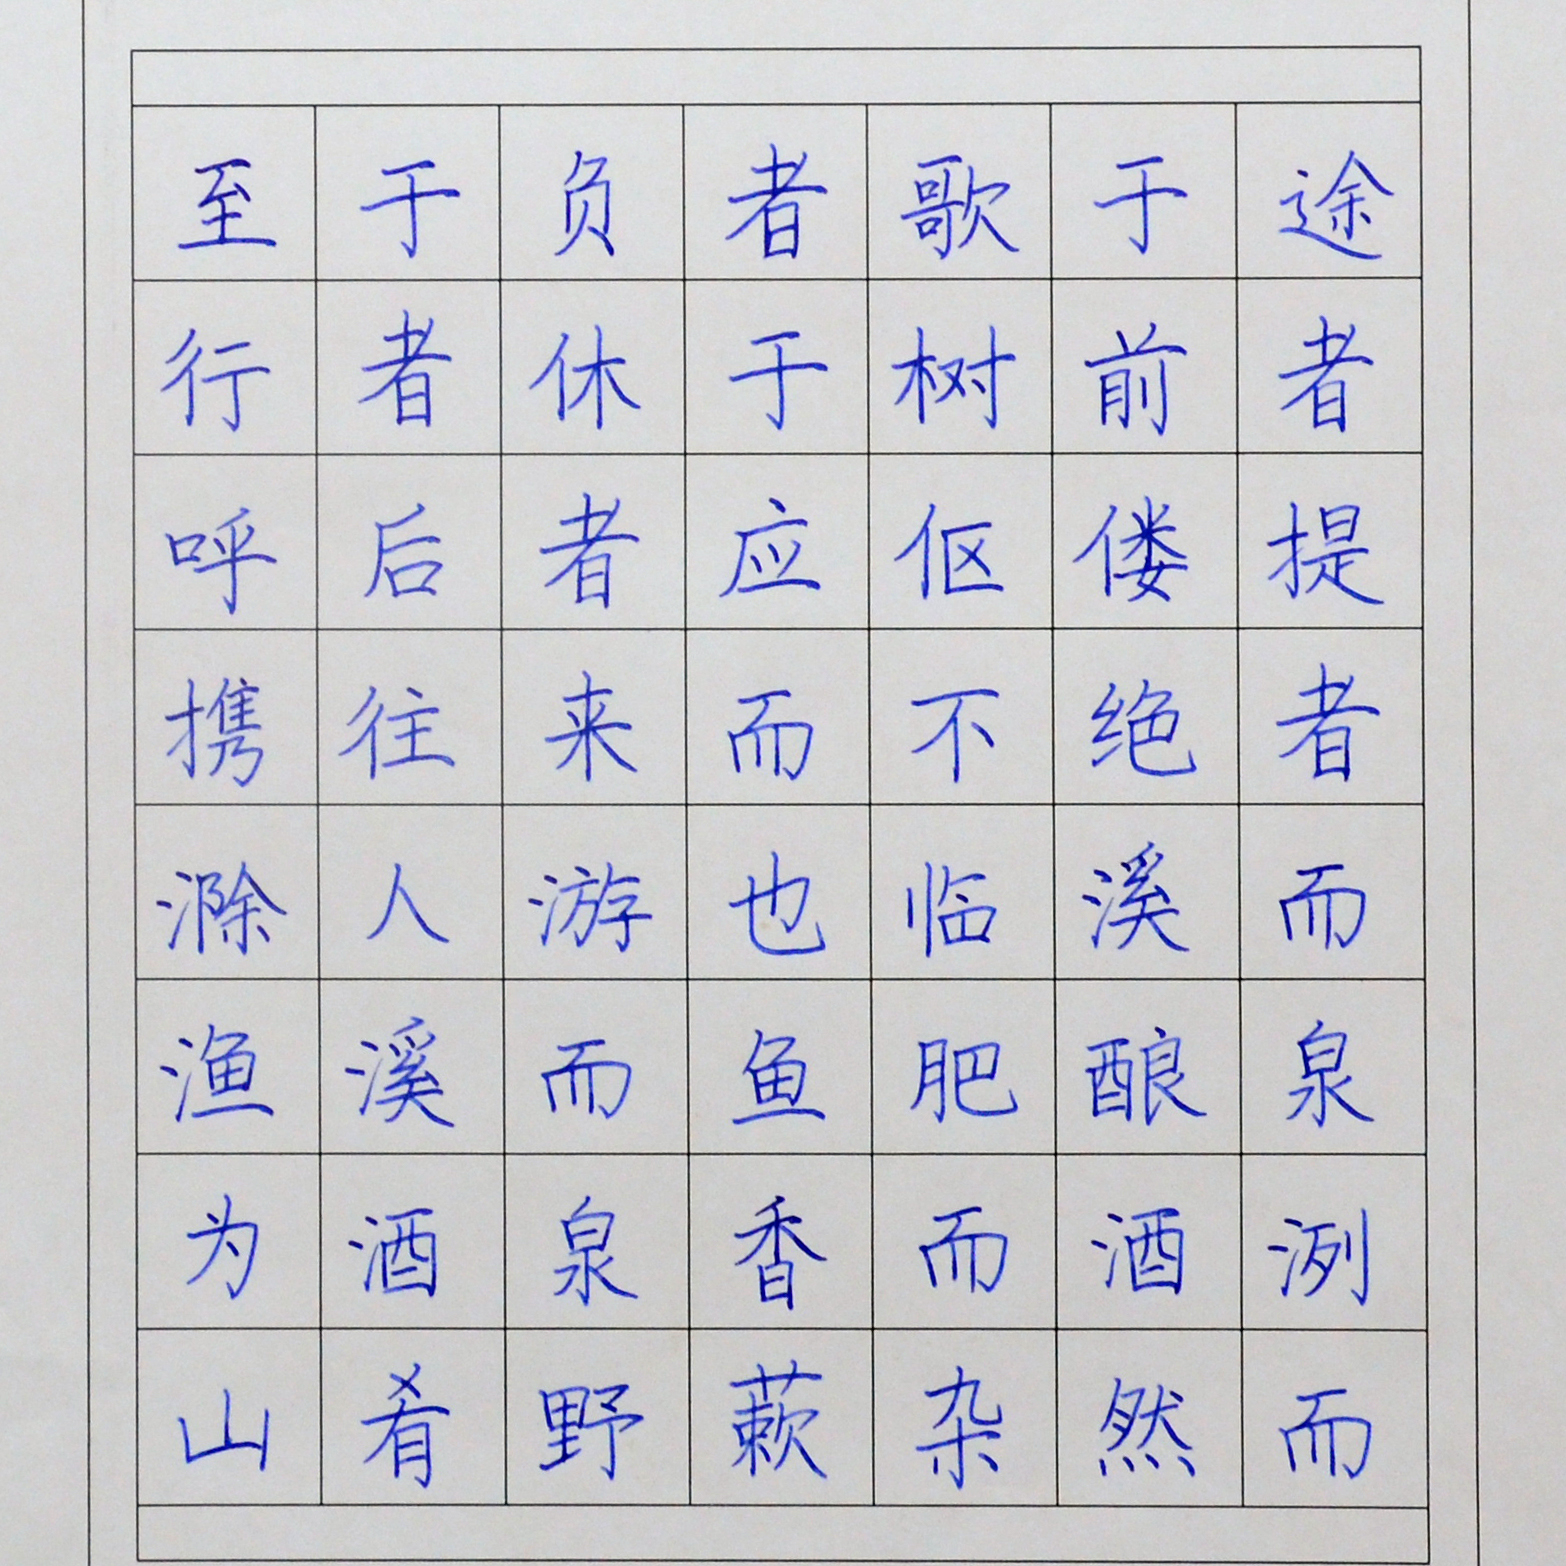 至于负者歌于途
行者休于树前者
呼后者应伛偻提
携往来而不绝者
滁人游也临溪而
渔溪而鱼肥酿泉
为酒泉香而酒洌
山肴野蔌杂然而